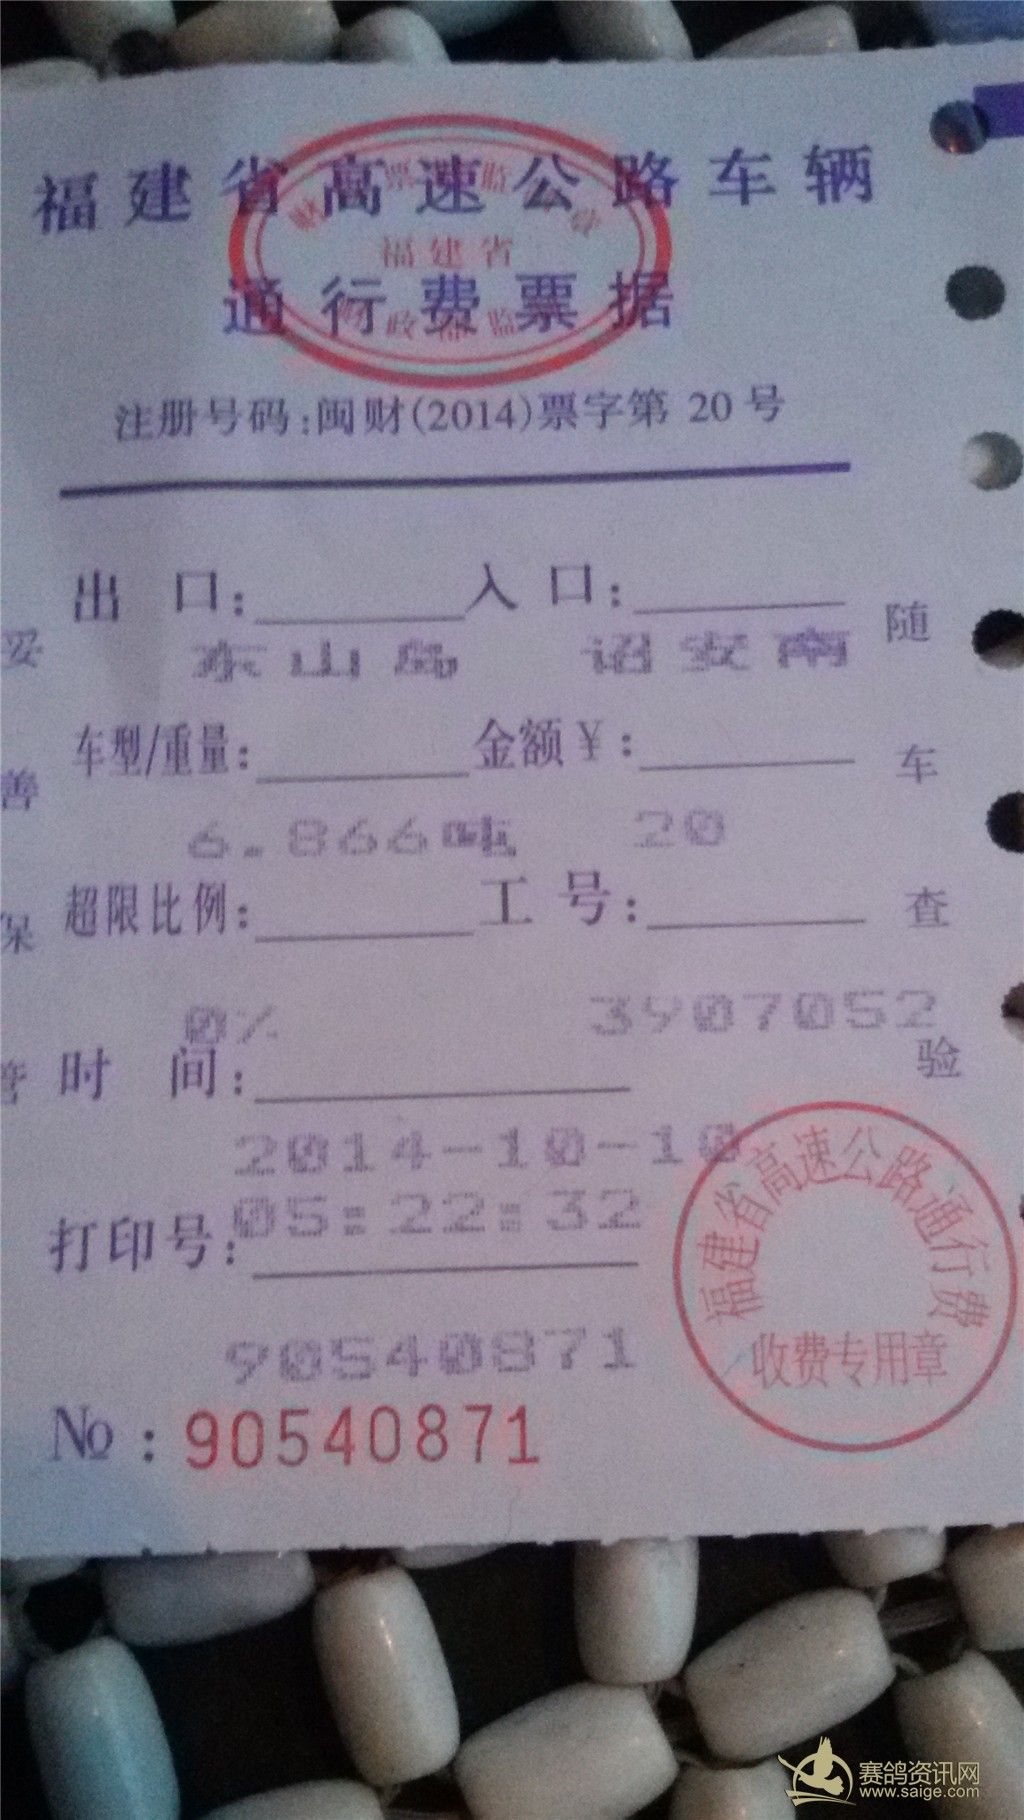 福建省高速公路车辆
福建省
通行费票据
注册号码:闽财(2014)票字第 20 号
出 口: 入 口:
东山岛 诏安南
车型/重量: 金额¥:
6.866吨 20
超限比例: 工 号:
0% 3907052
时 间:
2014-10-10
05:22:32
打印号:
90540871
No:90540871
随车查验
妥善保管
福建省高速公路通行费
收费专用章
赛鸽资讯网
www.saige.com